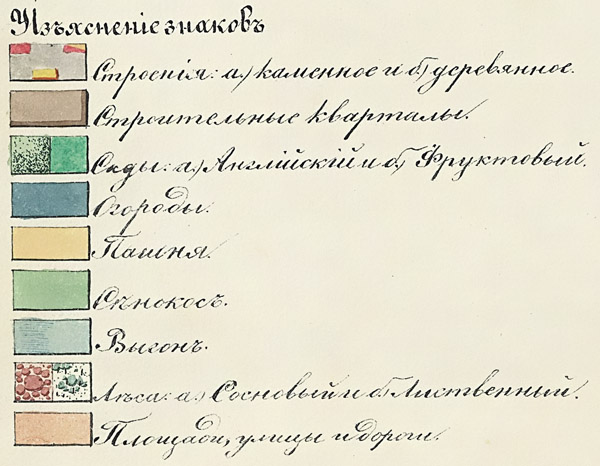 Изъясненіе знаковъ
Строенія: а.) каменное и б.) деревянное.
Строительные кварталы.
Сады: а.) Англійскій и б.) Фруктовый.
Огороды.
Пашня.
Сѣнокосъ.
Выгонъ.
Лѣса: а.) Сосновый и б.) Лиственный.
Площади, улицы и дороги.